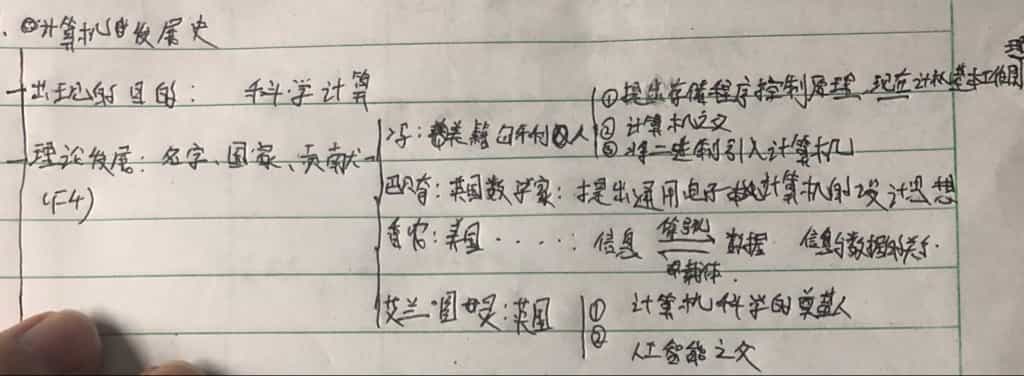 计算机的发展史
出现的目的： 科学计算
理论发展：名字、国家、贡献
(F4)
冯：美籍匈牙利人
① 提出存储程序控制原理 现在计机基本工作原理
② 计算机之父
③ 将二进制引入计算机
巴贝奇：英国数学家：提出通用电子计算机的设计思想
香农：美国·····： 信息 数据 信息与数据的关系.
载体.
艾兰·图灵：英国
① 计算机科学的奠基人
② 人工智能之父